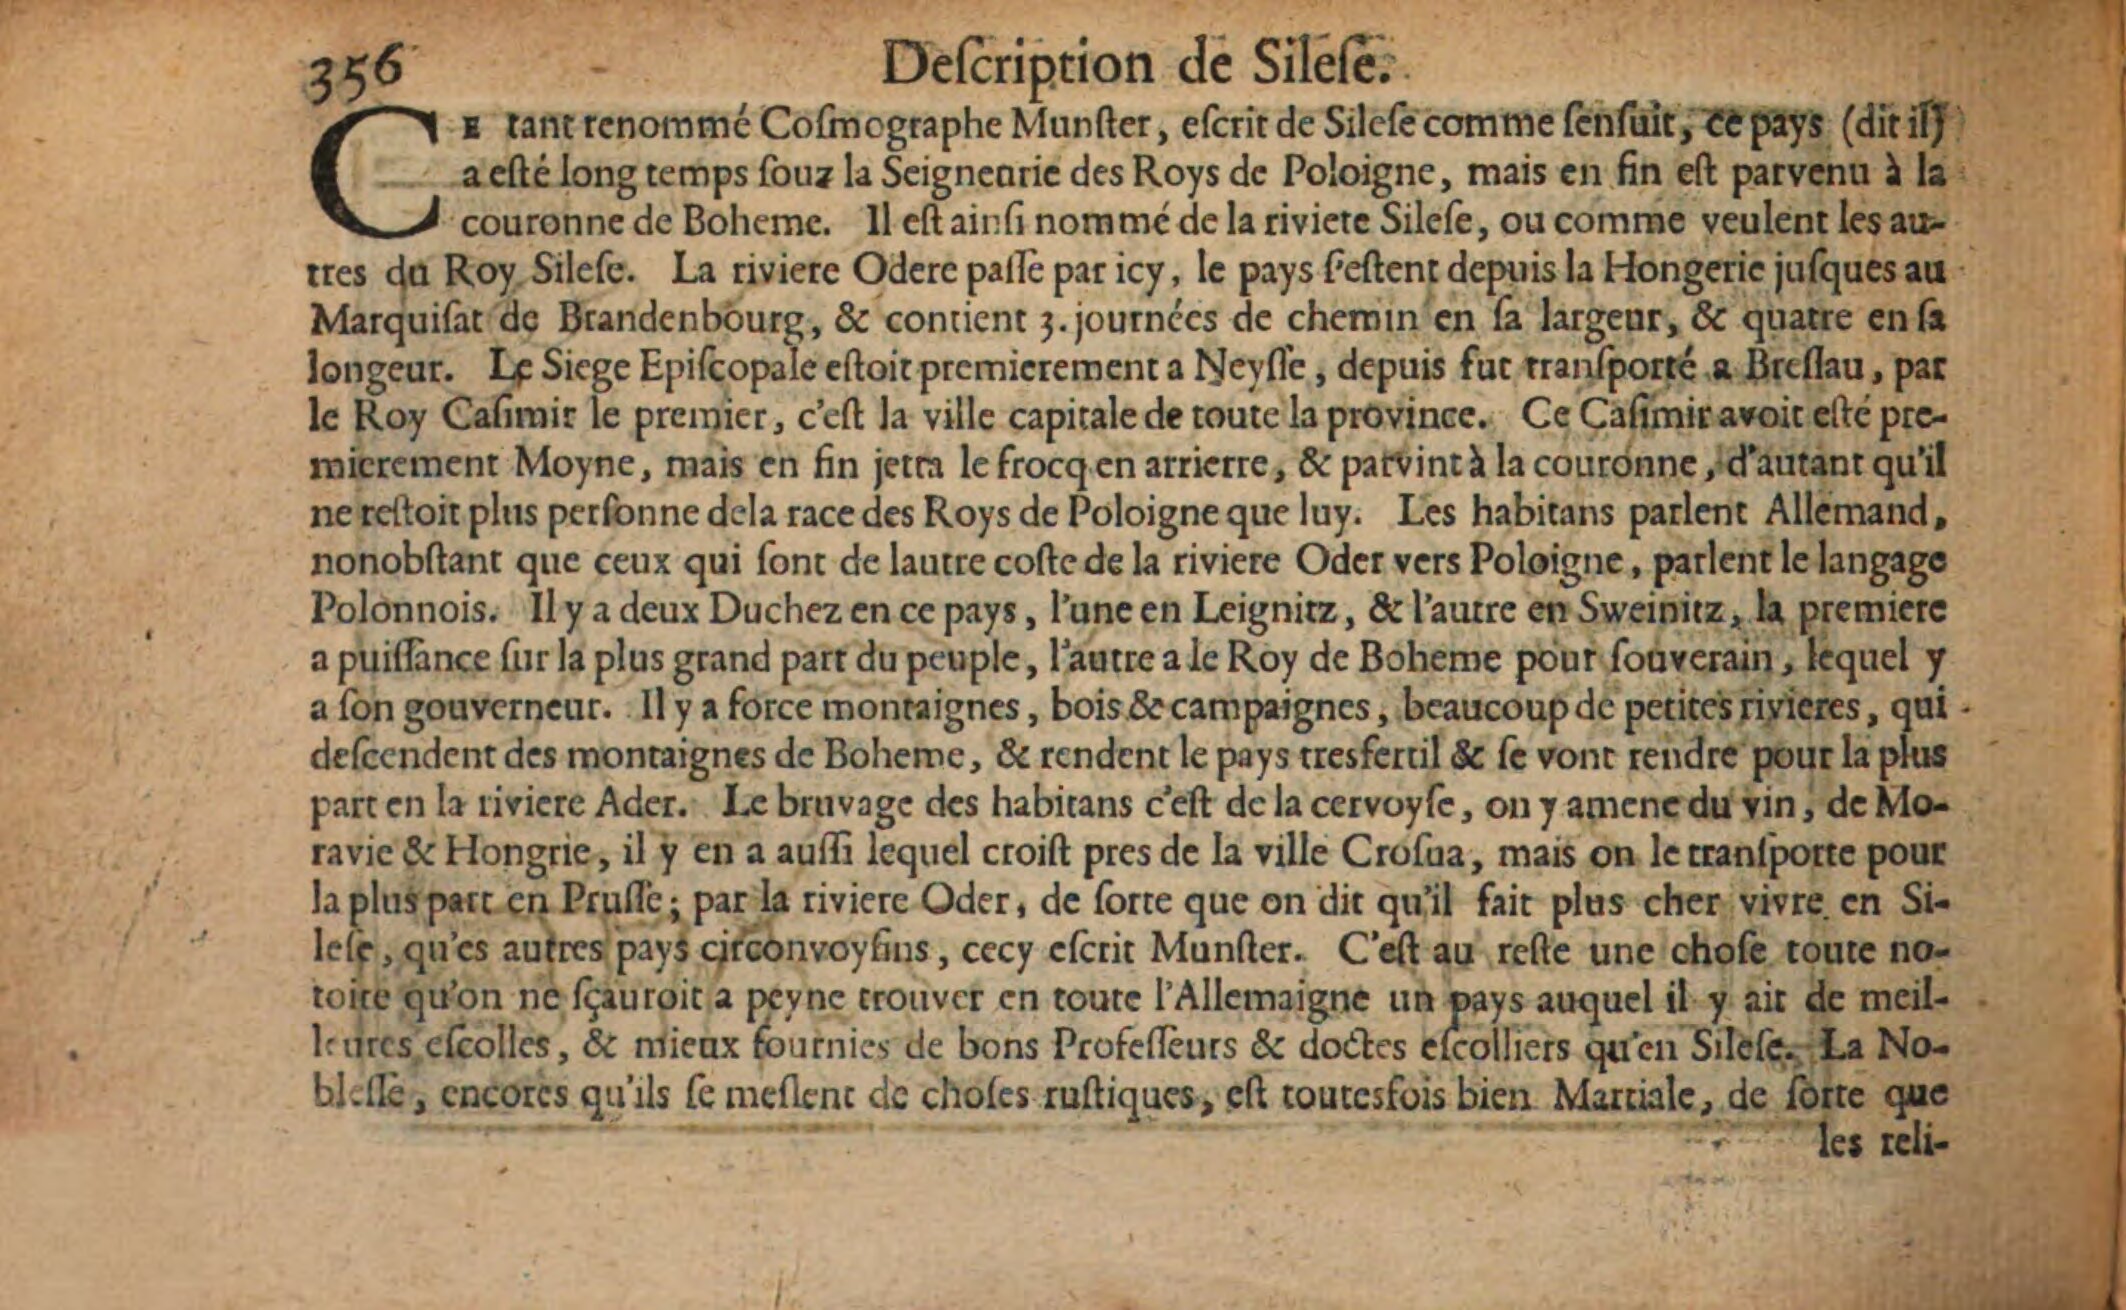 356 Deſcription de Sileſe.
CE tant renommé Coſmographe Munſter, eſcrit de Sileſe comme ſenſuit, ce pays (dit il)
a eſté long temps ſouz la Seigneurie des Roys de Poloigne, mais en fin eſt parvenu à la
couronne de Boheme. Il eſt ainſi nommé de la riviere Sileſe, ou comme veulent les au-
tres du Roy Sileſe. La riviere Odere paſſe par icy, le pays ſ'eſtent depuis la Hongerie juſques au
Marquiſat de Brandenbourg, & contient 3. journées de chemin en ſa largeur, & quatre en ſa
longeur. Le Siege Epiſcopale eſtoit premierement a Neyſſe, depuis fut tranſporté a Breſlau, par
le Roy Caſimir le premier, c'eſt la ville capitale de toute la province. Ce Caſimir avoit eſté pre-
mierement Moyne, mais en fin jetta le frocq en arrierre, & parvint à la couronne, d'autant qu'il
ne reſtoit plus perſonne dela race des Roys de Poloigne que luy. Les habitans parlent Allemand,
nonobſtant que ceux qui ſont de lautre coſte de la riviere Oder vers Poloigne, parlent le langage
Polonnois. Il y a deux Duchez en ce pays, l'une en Leignitz, & l'autre en Sweinitz, la premiere
a puiſſance ſur la plus grand part du peuple, l'autre a le Roy de Boheme pour ſouverain, lequel y
a ſon gouverneur. Il y a force montaignes, bois & campaignes, beaucoup de petites rivieres, qui
deſcendent des montaignes de Boheme, & rendent le pays tresfertil & ſe vont rendre pour la plus
part en la riviere Ader. Le bruvage des habitans c'eſt de la cervoyſe, on y amene du vin, de Mo-
ravie & Hongrie, il y en a auſſi lequel croiſt pres de la ville Croſna, mais on le tranſporte pour
la plus part en Pruſſe; par la riviere Oder, de ſorte que on dit qu'il fait plus cher vivre en Si-
leſe, qu'es autres pays circonvoyſins, cecy eſcrit Munſter. C'eſt au reſte une choſe toute no-
toire qu'on ne ſçauroit a peyne trouver en toute l'Allemaigne un pays auquel il y ait de meil-
leures eſcolles, & mieux fournies de bons Profeſſeurs & doctes eſcolliers qu'en Sileſe. La No-
bleſſe, encores qu'ils ſe meſlent de choſes ruſtiques, eſt toutesfois bien Martiale, de ſorte que
les reli-